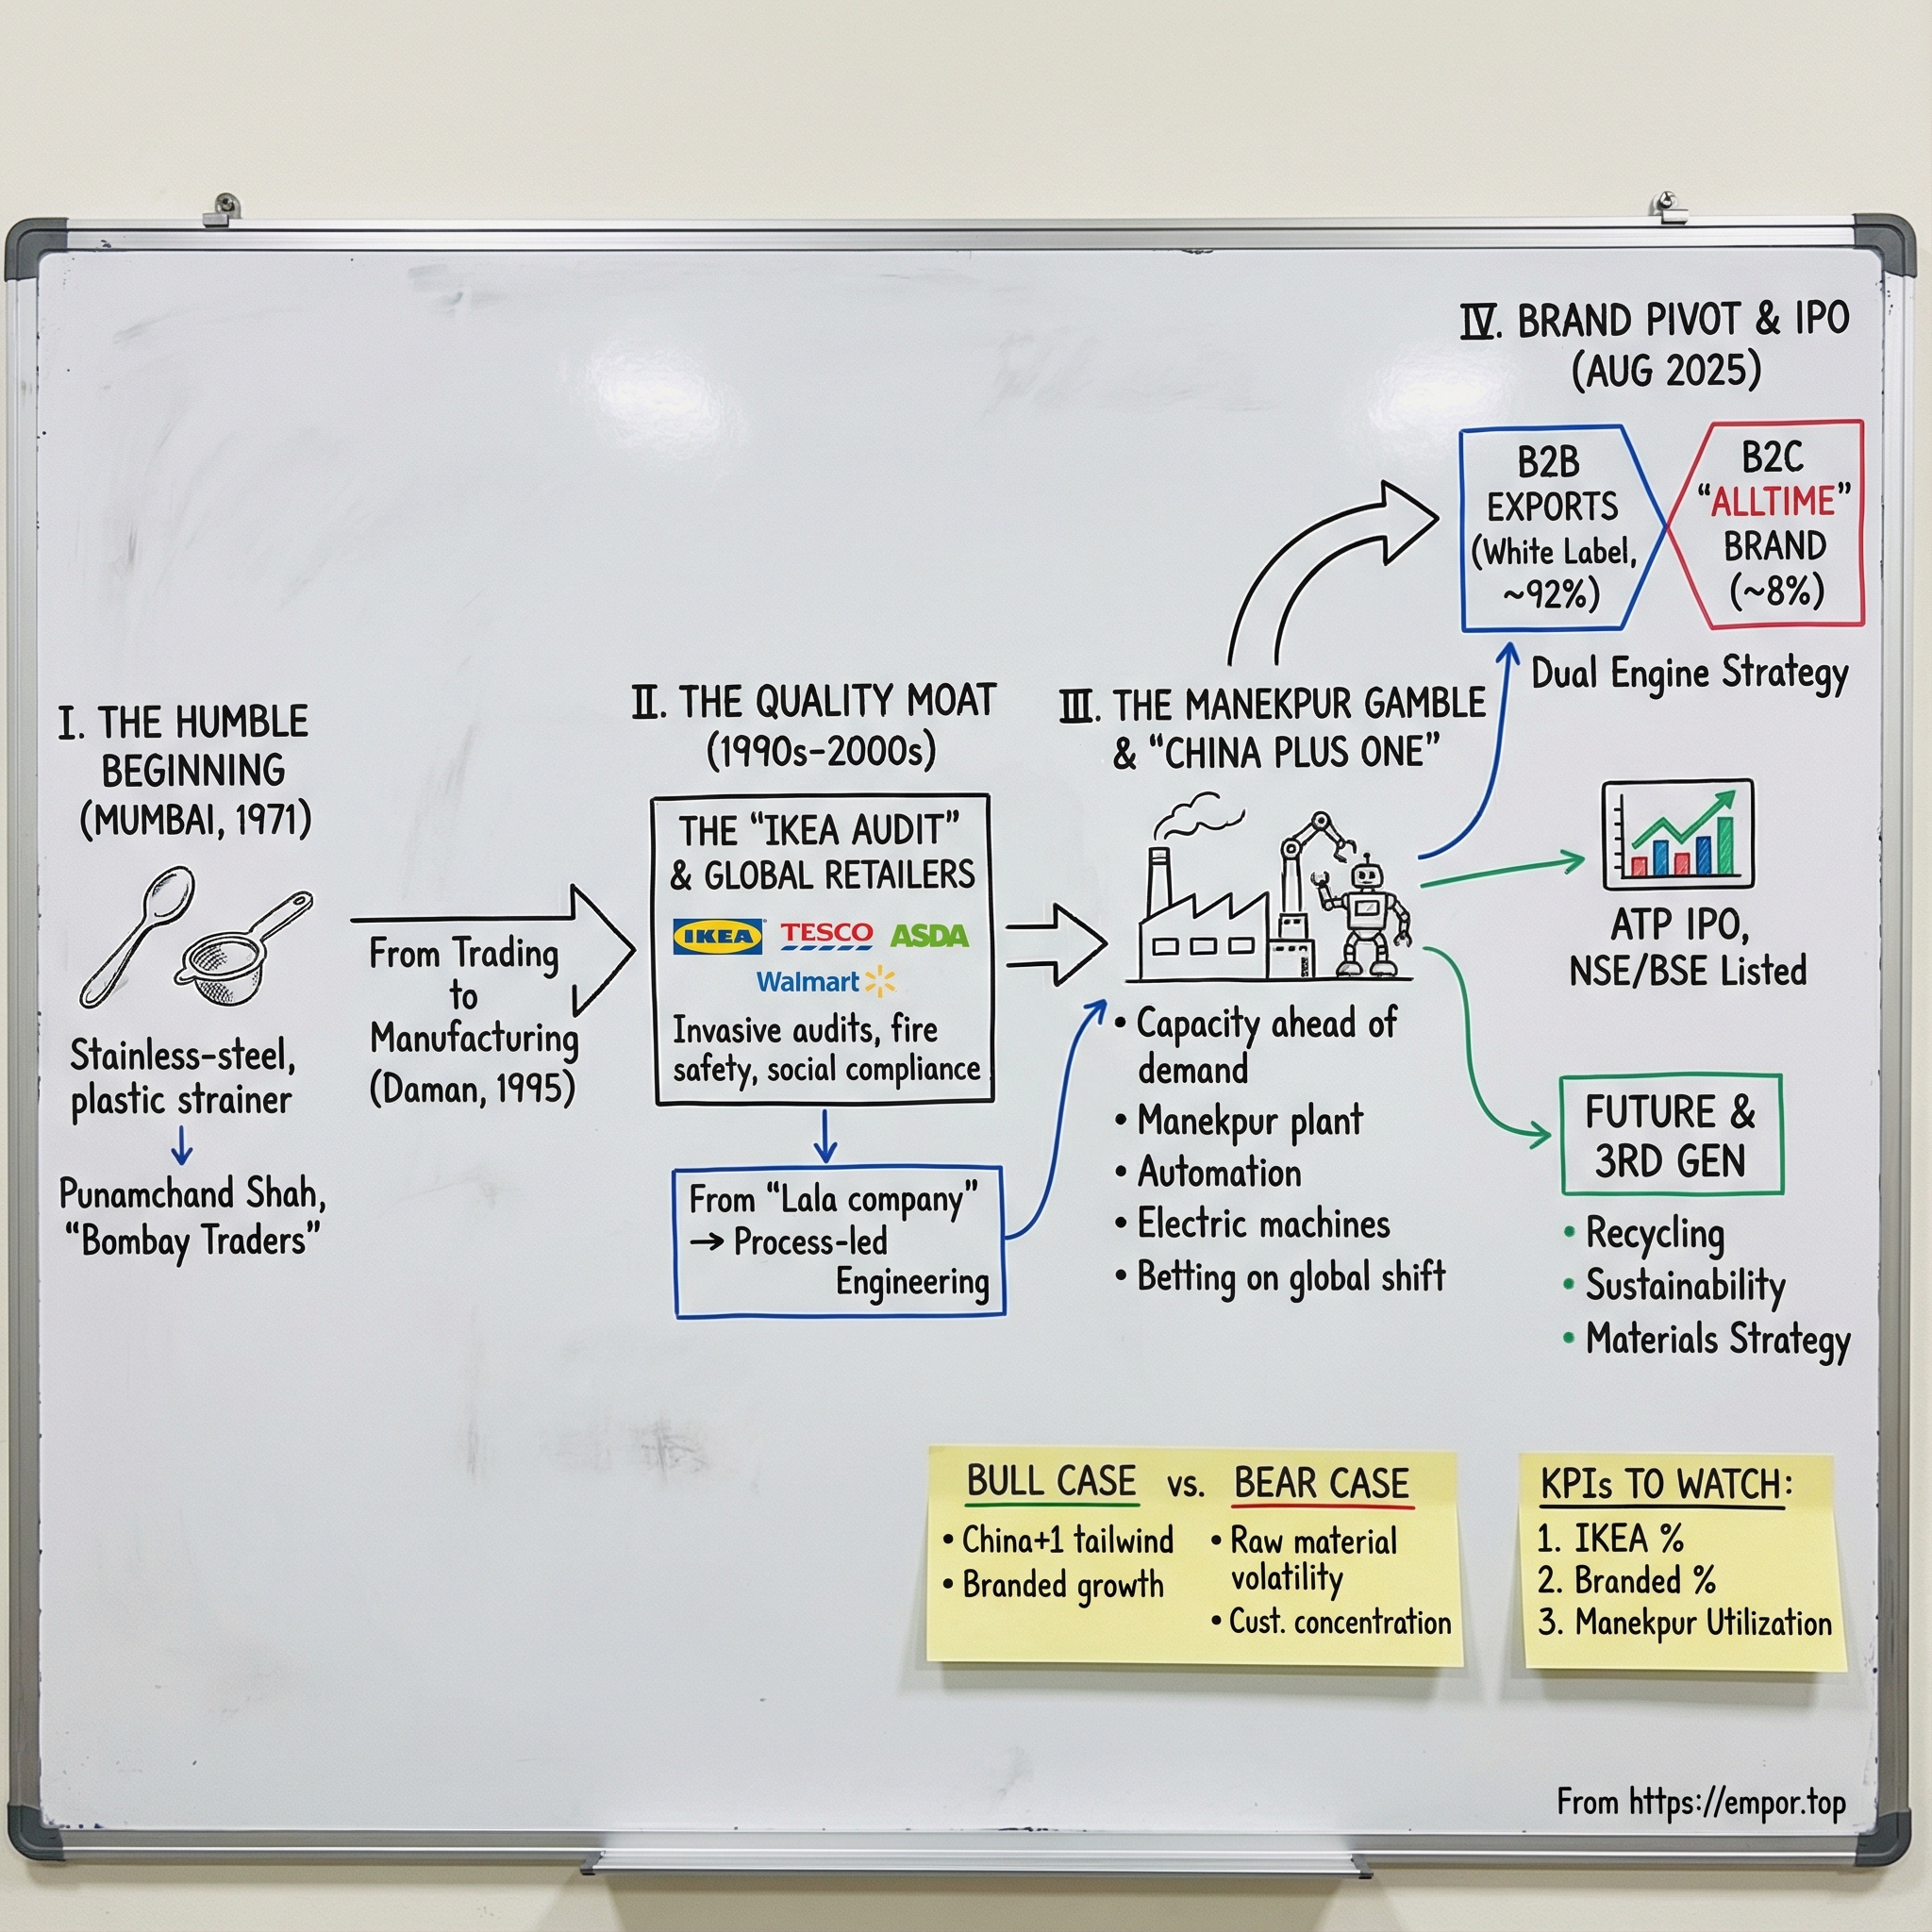 I. THE HUMBLE
BEGINNING
(MUMBAI, 1971)
Stainless-steel,
plastic strainer
Punamchand Shah,
“Bombay Traders”
From Trading
to
Manufacturing
(Daman, 1995)
II. THE QUALITY MOAT
(1990s-2000s)
THE “IKEA AUDIT”
& GLOBAL RETAILERS
IKEA TESCO ASDA
Walmart
Invasive audits, fire
safety, social compliance
From “Lala company”
→ Process-led
Engineering
III. THE MANEKPUR GAMBLE
& “CHINA PLUS ONE”
• Capacity ahead of
demand
• Manekpur plant
• Automation
• Electric machines
• Betting on global shift
IV. BRAND PIVOT & IPO
(AUG 2025)
B2B
EXPORTS
(White Label,
~92%)
B2C
“ALLTIME”
BRAND
(~8%)
Dual Engine Strategy
ATP IPO,
NSE/BSE Listed
FUTURE &
3RD GEN
• Recycling
• Sustainability
• Materials Strategy
BULL CASE vs. BEAR CASE
• China+1 tailwind
• Branded growth
• Raw material
volatility
• Cust. concentration
KPIs TO WATCH:
1. IKEA %
2. Branded %
3. Manekpur Utilization
From https://empor.top